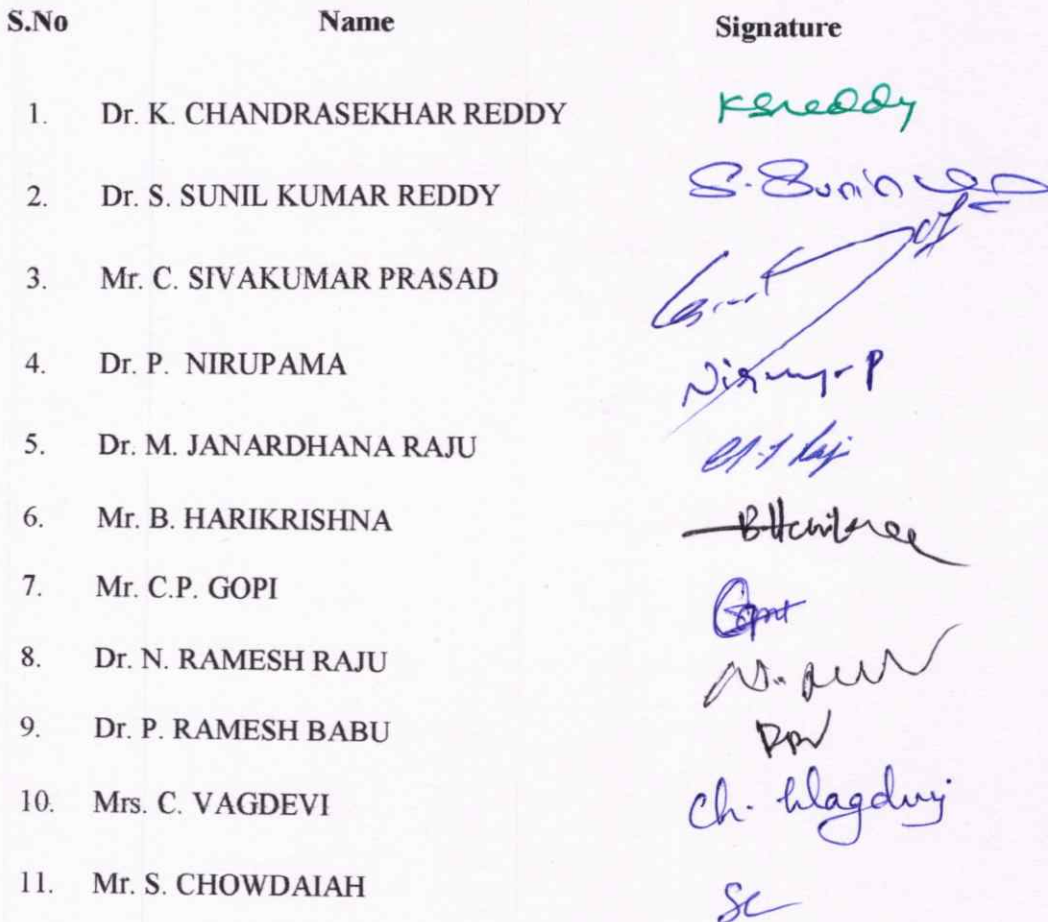 S.No Name Signature
1. Dr. K. CHANDRASEKHAR REDDY KSreddy
2. Dr. S. SUNIL KUMAR REDDY S. Sunil
3. Mr. C. SIVAKUMAR PRASAD
4. Dr. P. NIRUPAMA P
5. Dr. M. JANARDHANA RAJU
6. Mr. B. HARIKRISHNA
7. Mr. C.P. GOPI
8. Dr. N. RAMESH RAJU
9. Dr. P. RAMESH BABU
10. Mrs. C. VAGDEVI Ch.
11. Mr. S. CHOWDAIAH SC